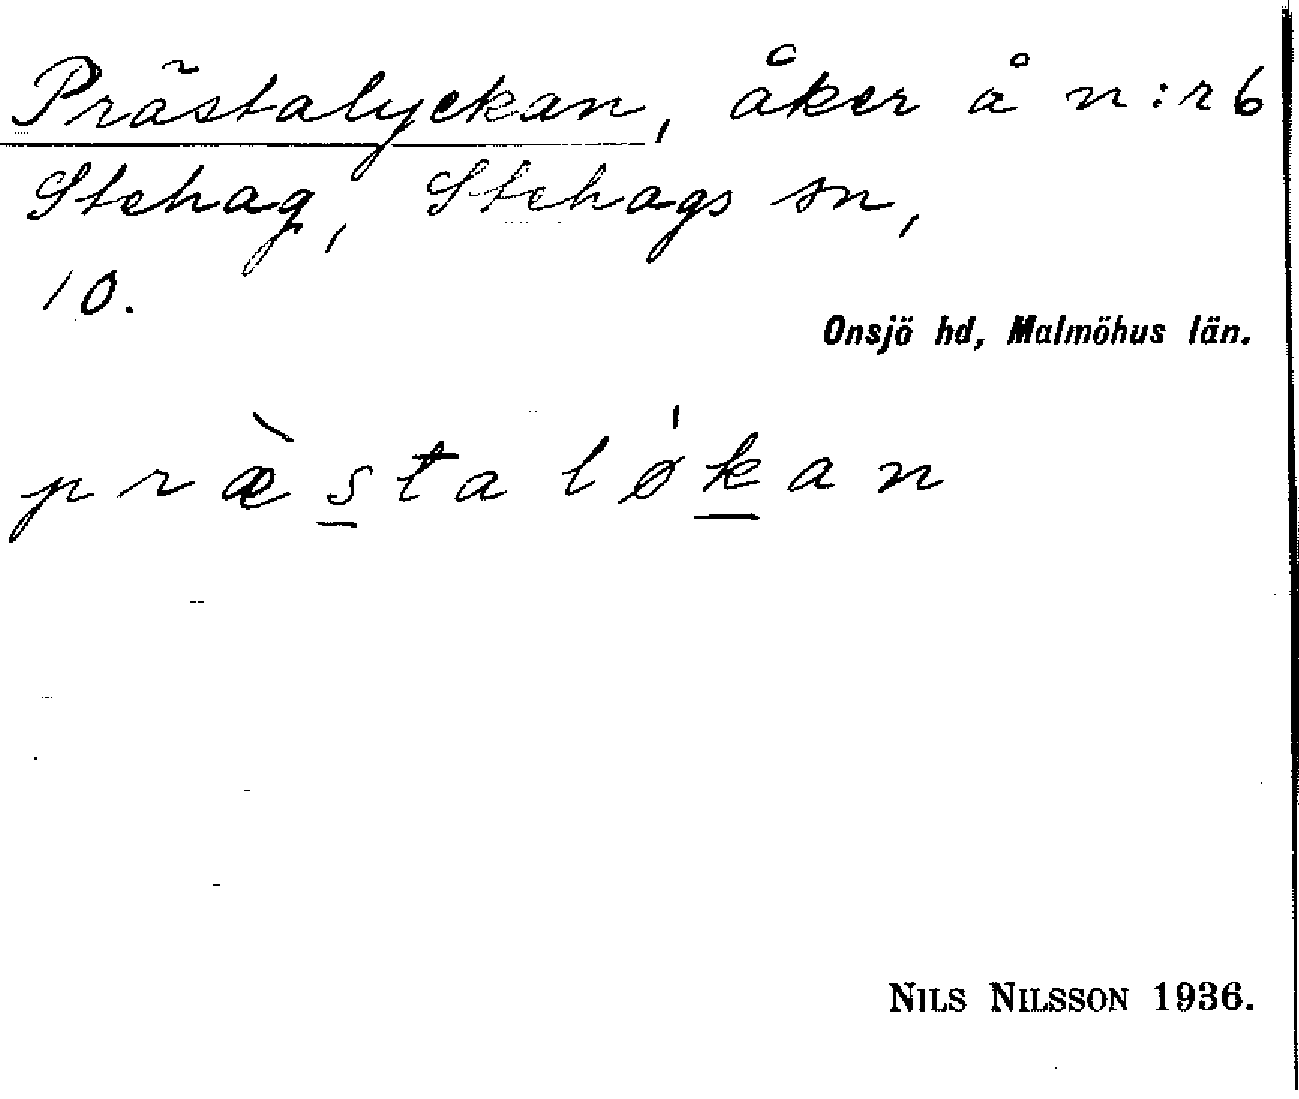 Prästalyckan, åker å n:r 6
Stehag, Stehags sn,
10.
Onsjö hd, Malmöhus län.
præ̀s̲talǿk̲an
NILS NILSSON 1936.